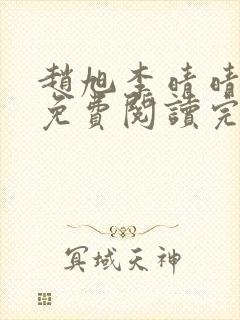 趙旭李晴晴
免費閱讀完
冥域天神